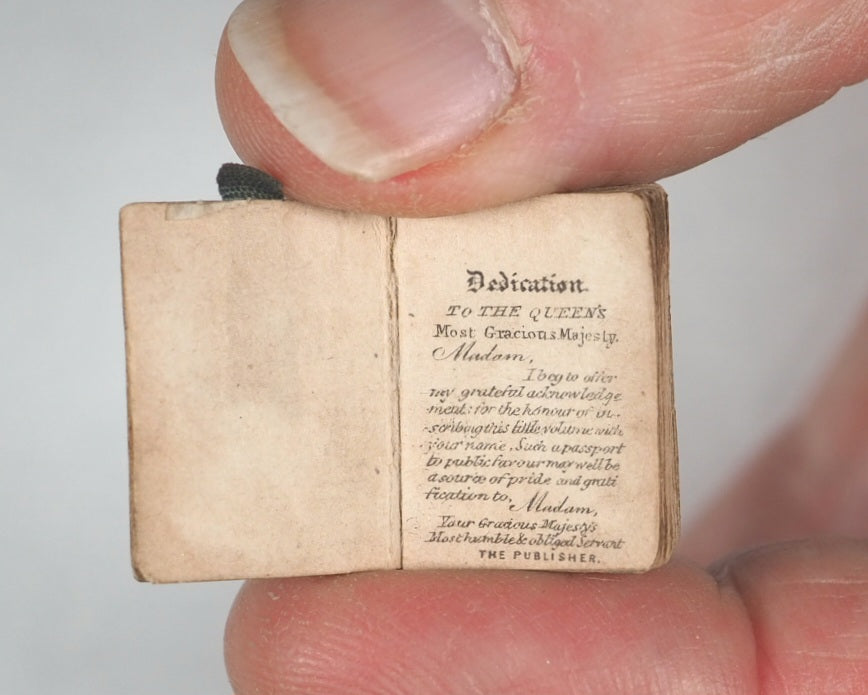 Dedication.
TO THE QUEEN'S
Most Gracious Majesty.
Madam,
I beg to offer
my grateful acknowledge
ment: for the honour of in-
scribing this little volume with
your name. Such a passport
to public favour may well be
a source of pride and grati
fication to, Madam,
Your Gracious Majesty's
Most humble & obliged Servant
THE PUBLISHER.